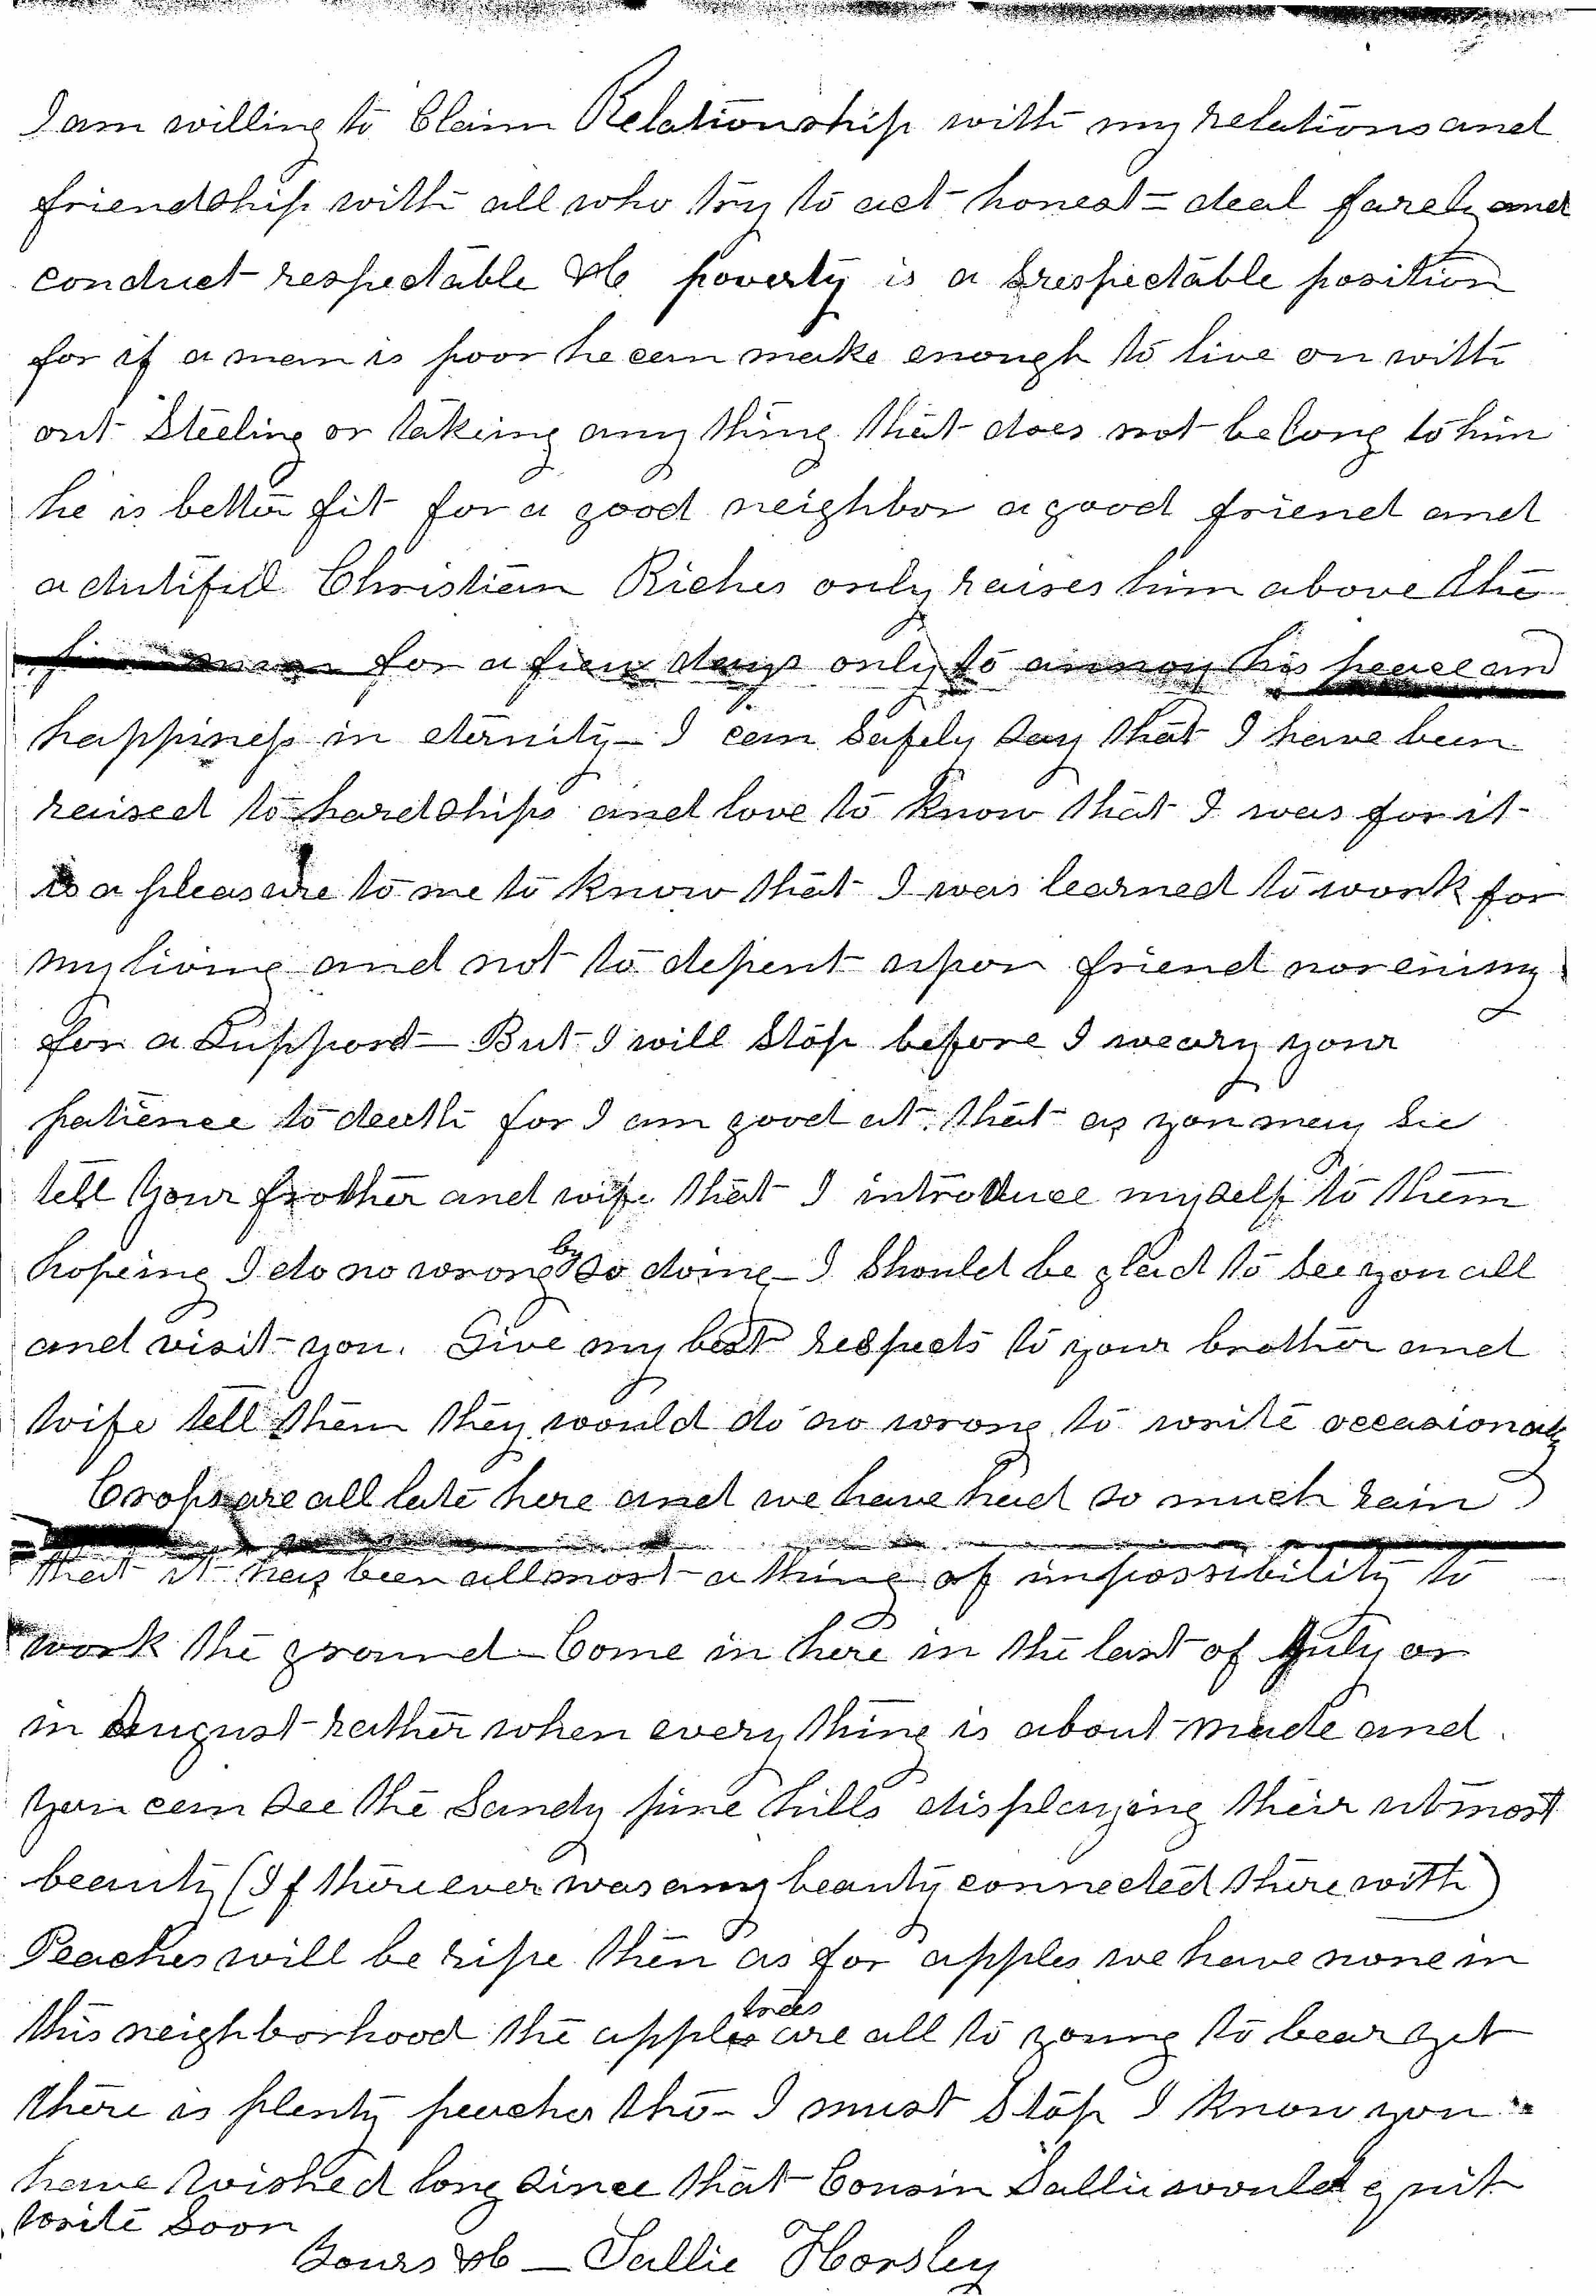 I am willing to Claim Relationship with my relations and
friendship with all who try to act honest - deal farely and
conduct respectable &c poverty is a respectable position
for if a man is poor he can make enough to live on with
out Steeling or taking any thing that does not belong to him
he is better fit for a good neighbor a good friend and
a dutiful Christian Riches only raises him above the
for a few days only to annoy his peace and
happiness in eternity - I can Safely Say that I have been
raised to hardships and love to know that I was for it
is a pleasure to me to know that I was learned to work for
my living and not to depent upon friend nor enimy
for a Support - But I will Stop before I weary your
patience to death for I am good at that as you may See
tell your frother and wife that I introduce myself to them
hopeing I do no wrong by So doing - I Should be glad to See you all
and visit you. Give my best respects to your brother and
wife tell them they would do no wrong to write occasionaly
Crops are all late here and we have had so much rain
that it has been allmost a thing of impossibility to
work the ground - Come in here in the last of July or
in August rather when every thing is about made and
you can See the Sandy pine hills displaying their utmost
beauty (If there ever was any beauty connected there with)
Peaches will be ripe then as for apples we have none in
this neighborhood the apple trees are all to young to bear yet
there is plenty peaches tho - I must Stop I know you
have wished long Since that Cousin Sallie would quit
write Soon
Yours &c - Sallie Horsley